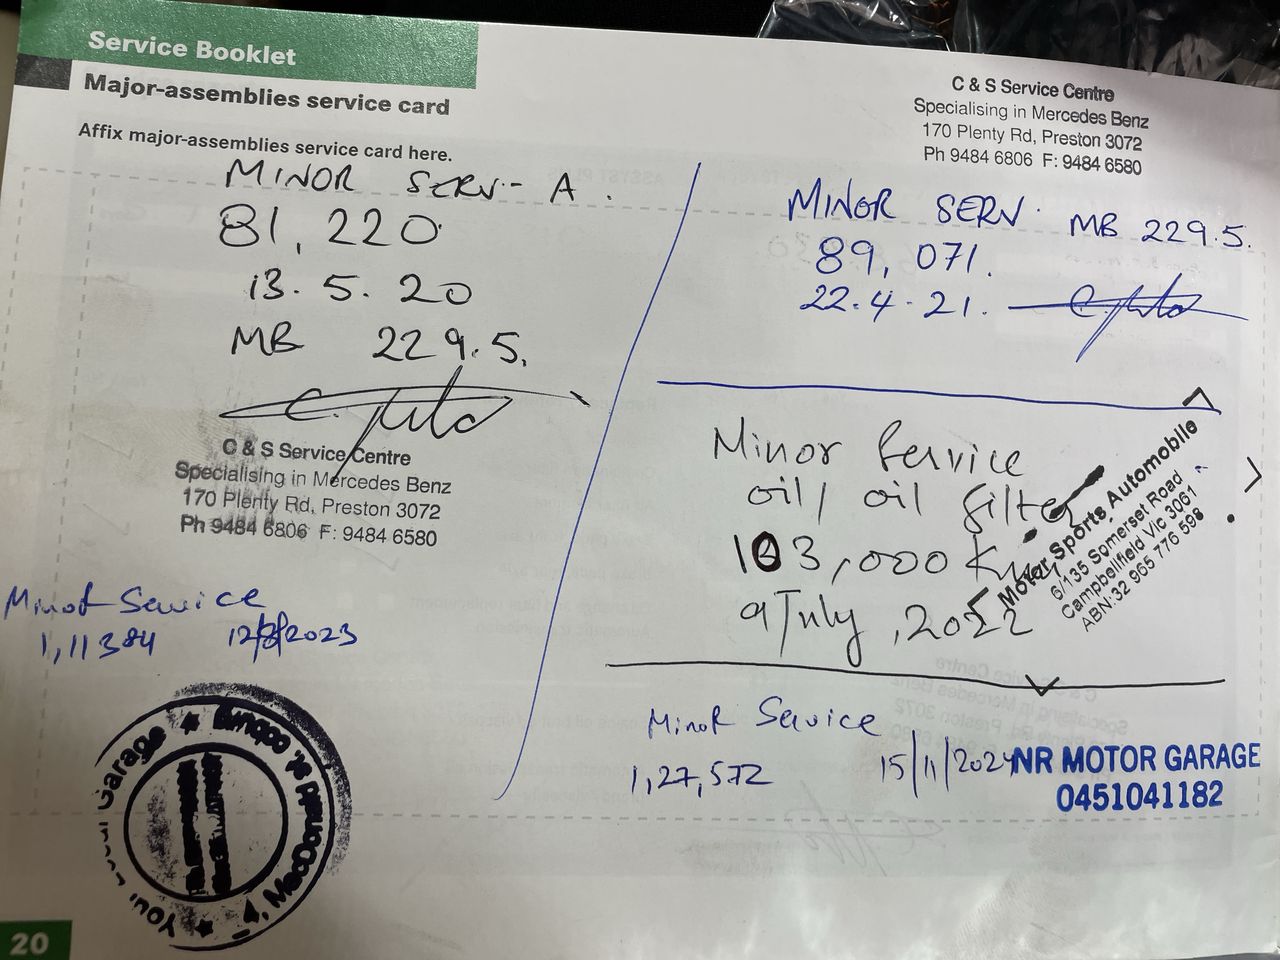 Service Booklet
Major-assemblies service card
Affix major-assemblies service card here.
MINOR SERV- A.
81,220
13.5.20
MB 229.5.
C & S Service Centre
Specialising in Mercedes Benz
170 Plenty Rd, Preston 3072
Ph 9484 6806 F: 9484 6580
Minor Service
1,11384 12/8/2023
Your Local Garage
MacDonald St,
C & S Service Centre
Specialising in Mercedes Benz
170 Plenty Rd, Preston 3072
Ph 9484 6806 F: 9484 6580
MINOR SERV. MB 229.5.
89,071.
22.4.21.
Minor Service
oil/ oil filter
103,000 Km
9 July, 2022
Motor Sports Automobile
6/135 Somerset Road
Campbellfield Vic 3061
ABN: 32 965 776 598
Minor Service
1,27,572 15/11/2024
NR MOTOR GARAGE
0451041182
20